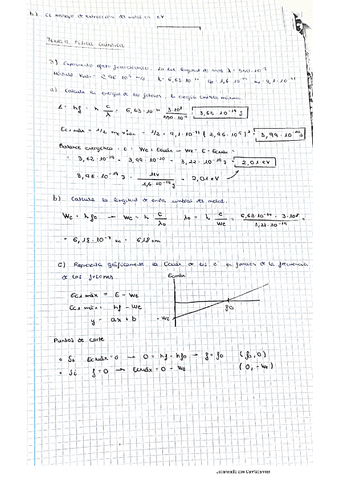 b) El trabajo de extracción del metal en eV
Tema 4. Física cuántica
3) Experimento efecto fotoeléctrico. Luz long. de onda λ = 550·10⁻⁹
2,96·10⁵ m/s h = 6,63·10⁻³⁴ 1,6·10⁻¹⁹ 9,1·10⁻³¹
a) Calcula la energía de los fotones, la energía cinética máxima
E = hf = h c/λ = 6,63·10⁻³⁴ 3·10⁸/550·10⁻⁹ = 3,62·10⁻¹⁹ J
Ec máx = 1/2 m v²máx = 1/2 · 9,1·10⁻³¹ (2,96·10⁵)² = 3,99·10⁻²⁰ J
Balance energético: E = We + Ecmáx → We = E - Ecmáx =
= 3,62·10⁻¹⁹ - 3,99·10⁻²⁰ = 3,22·10⁻¹⁹ J = 2,01 eV
1eV/1,6·10⁻¹⁹ J = 2,01 eV
b) Calcula la longitud de onda umbral del metal.
We = hf₀ → We = h c/λ₀ λ₀ = h c/We = 6,63·10⁻³⁴ · 3·10⁸/3,22·10⁻¹⁹ =
= 6,18·10⁻⁷ m = 618 nm
c) Representa gráficamente la Ecmáx de los e⁻ en función de la frecuencia
de los fotones
Ecmáx
Ec máx = E - We
Ec máx = hf - We
y = ax + b
-We
f0
Puntos de corte
• Si Ecmáx = 0 → 0 = hf - hf₀ → f = f₀ (f₀, 0)
• Si f = 0 → Ecmáx = 0 - We (0, -We)
Escaneado con CamScanner